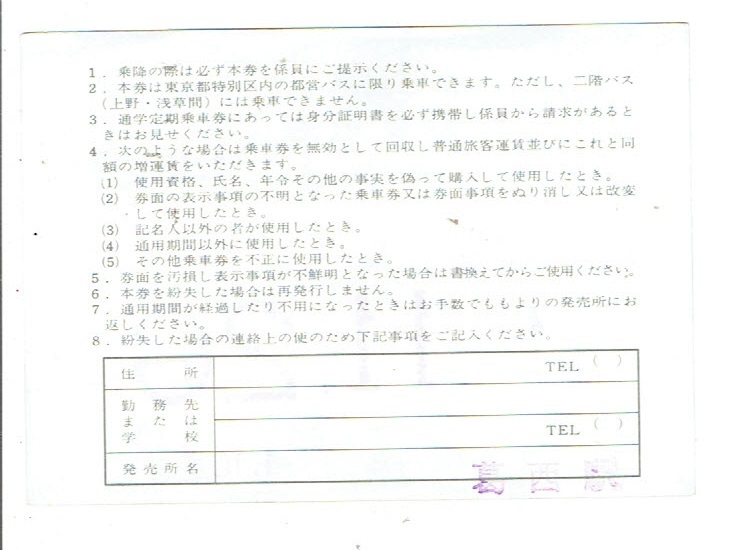 1．乗降の際は必ず本券を係員にご提示ください。
2．本券は東京都特別区内の都営バスに限り乗車できます。ただし、二階バス
（上野・浅草間）には乗車できません。
3．通学定期乗車券にあっては身分証明書を必ず携帯し係員から請求があると
きはお見せください。
4．次のような場合は乗車券を無効として回収し普通旅客運賃並びにこれと同
額の増運賃をいただきます。
(1) 使用資格、氏名、年令その他の事実を偽って購入して使用したとき。
(2) 券面の表示事項の不明となった乗車券又は券面事項をぬり消し又は改変
して使用したとき。
(3) 記名人以外の者が使用したとき。
(4) 通用期間以外に使用したとき。
(5) その他乗車券を不正に使用したとき。
5．券面を汚損し表示事項が不鮮明となった場合は書換えてからご使用ください。
6．本券を紛失した場合は再発行しません。
7．通用期間が経過したり不用になったときはお手数でももよりの発売所にお
返しください。
8．紛失した場合の連絡上の使のため下記事項をご記入ください。
住所 TEL ( )
勤務先
または
学校 TEL ( )
発売所名 葛西駅